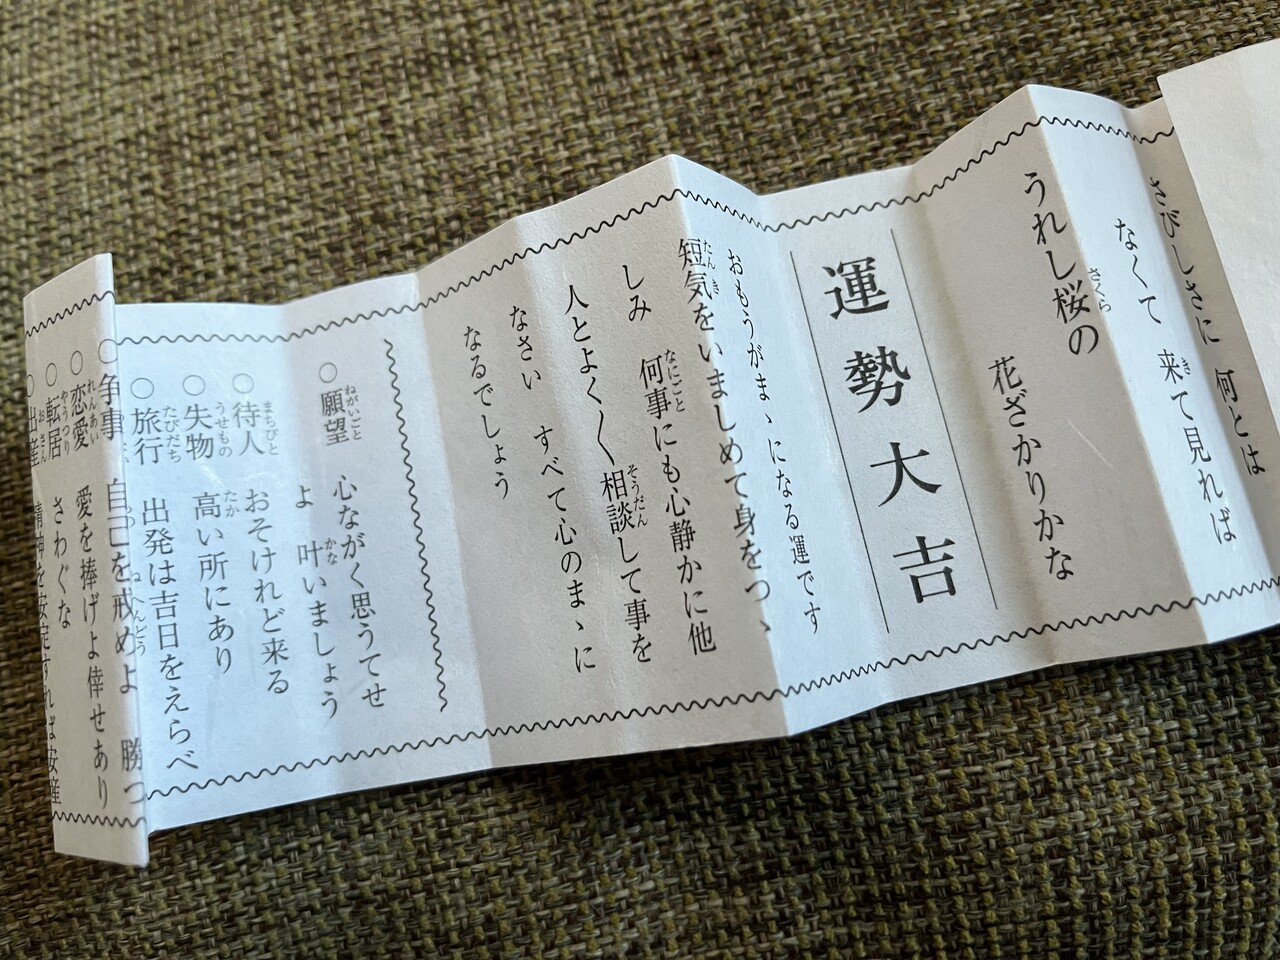 さびしさに 何とは
なくて 来て見れば
うれし桜の
花ざかりかな
運勢大吉
おもうがまゝになる運です
短気をいましめて身をつゝ
しみ 何事にも心静かに他
人とよく〱相談して事を
なさい すべて心のまゝに
なるでしょう
○願望 心ながく思うてせ
よ 叶いましょう
○待人 おそけれど来る
○失物 高い所にあり
○旅行 出発は吉日をえらべ
○争事 自己を戒めよ 勝つ
○恋愛 愛を捧げよ倖せあり
○転居 さわぐな
○出産 精神を安定すれば安産